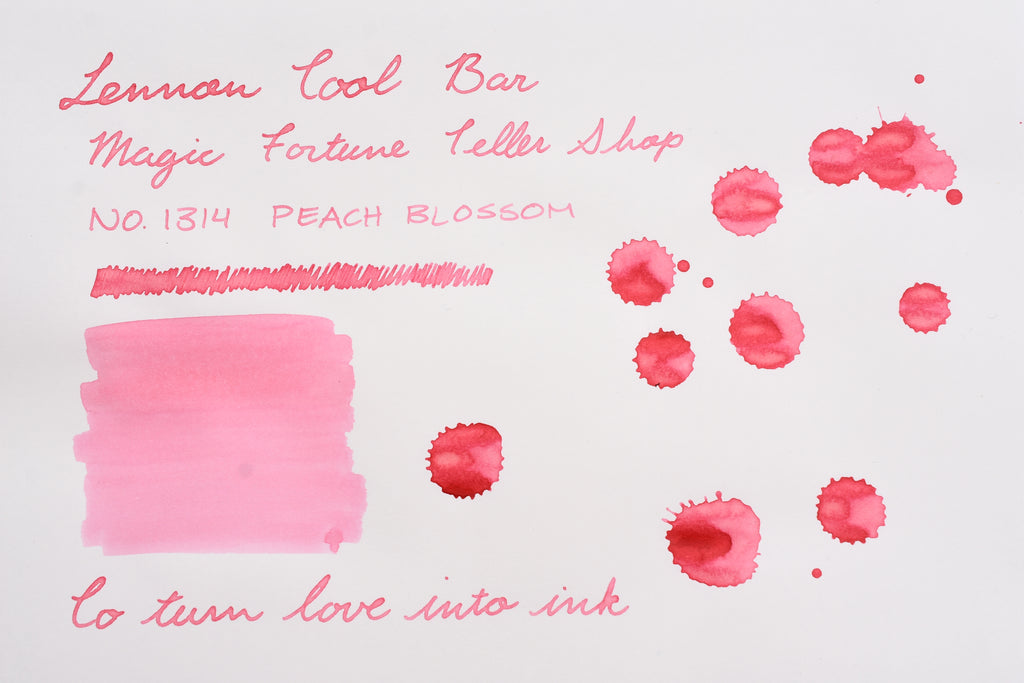 Lennon Tool Bar
Magic Fortune Teller Shop
NO. 1314 PEACH BLOSSOM
To turn love into ink